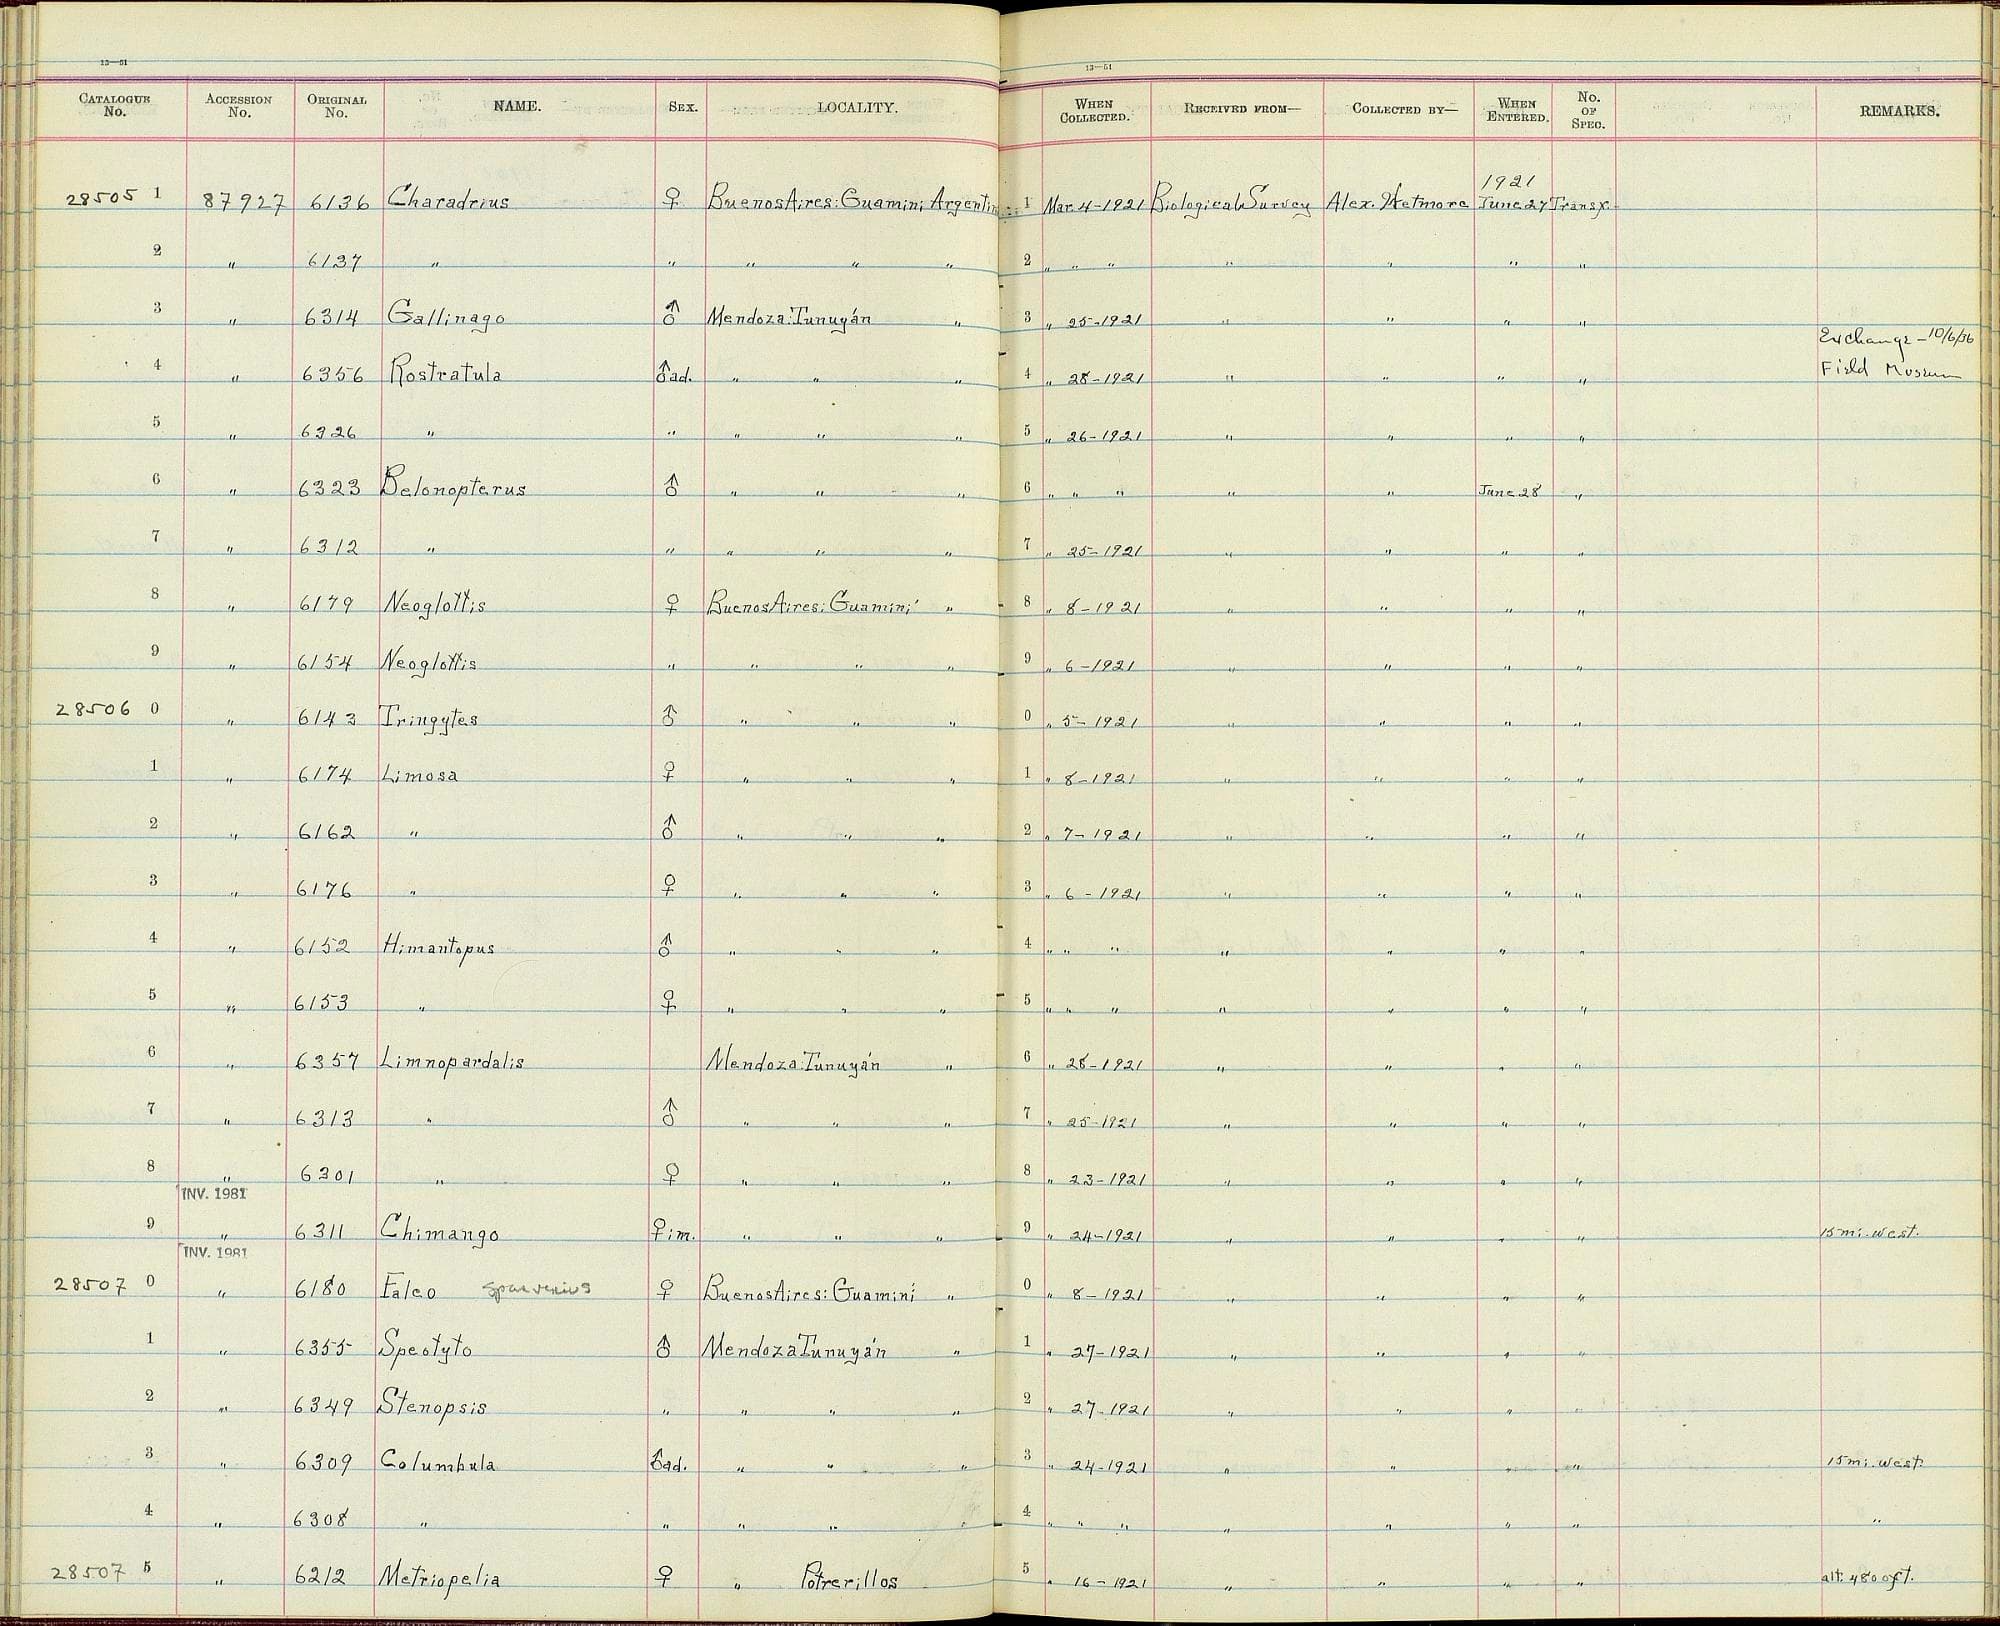 13—51
13—51
CATALOGUE No. ACCESSION No. ORIGINAL No. NAME. SEX. LOCALITY. WHEN COLLECTED. RECEIVED FROM— COLLECTED BY— WHEN ENTERED. No. OF SPEC. REMARKS.
28505 1 87927 6136 Charadrius ♀ Buenos Aires: Guamini Argentina 1 Mar. 4-1921 Biological Survey Alex. Wetmore 1921 June 27 Transf.
2 " 6137 " " " " " 2 " " " " " " "
3 " 6314 Gallinago ♂ Mendoza: Tunuyán " 3 " 25-1921 " " " "
4 " 6356 Rostratula ♂ad. " " " 4 " 28-1921 " " " " Exchange - 10/6/36 Field Museum
5 " 6326 " " " " " 5 " 26-1921 " " " "
6 " 6323 Belonopterus ♂ " " " 6 " " " " " June 28 "
7 " 6312 " " " " " 7 " 25-1921 " " " "
8 " 6179 Neoglottis ♀ Buenos Aires: Guamini " 8 " 8-1921 " " " "
9 " 6154 Neoglottis " " " " 9 " 6-1921 " " " "
28506 0 " 6143 Tringytes ♂ " " " 0 " 5-1921 " " " "
1 " 6174 Limosa ♀ " " " 1 " 8-1921 " " " "
2 " 6162 " ♂ " " " 2 " 7-1921 " " " "
3 " 6176 " ♀ " " " 3 " 6-1921 " " " "
4 " 6152 Himantopus ♂ " " " 4 " " " " " " "
5 " 6153 " ♀ " " " 5 " " " " " " "
6 " 6357 Limnopardalis Mendoza: Tunuyán " 6 " 28-1921 " " " "
7 " 6313 " ♂ " " " 7 " 25-1921 " " " "
8 " 6301 " ♀ " " " 8 " 23-1921 " " " "
INV. 1981
9 " 6311 Chimango ♀im. " " " 9 " 24-1921 " " " " 15 mi. west.
INV. 1981
28507 0 " 6180 Falco sparverius ♀ Buenos Aires: Guamini " 0 " 8-1921 " " " "
1 " 6355 Speotyto ♂ Mendoza Tunuyán " 1 " 27-1921 " " " "
2 " 6349 Stenopsis " " " " 2 " 27-1921 " " " "
3 " 6309 Columbula ♂ad. " " " 3 " 24-1921 " " " " 15 mi. west.
4 " 6308 " " " " " 4 " " " " " " " "
28507 5 " 6212 Metriopelia ♀ " Potrerillos 5 " 16-1921 " " " " alt. 4800ft.